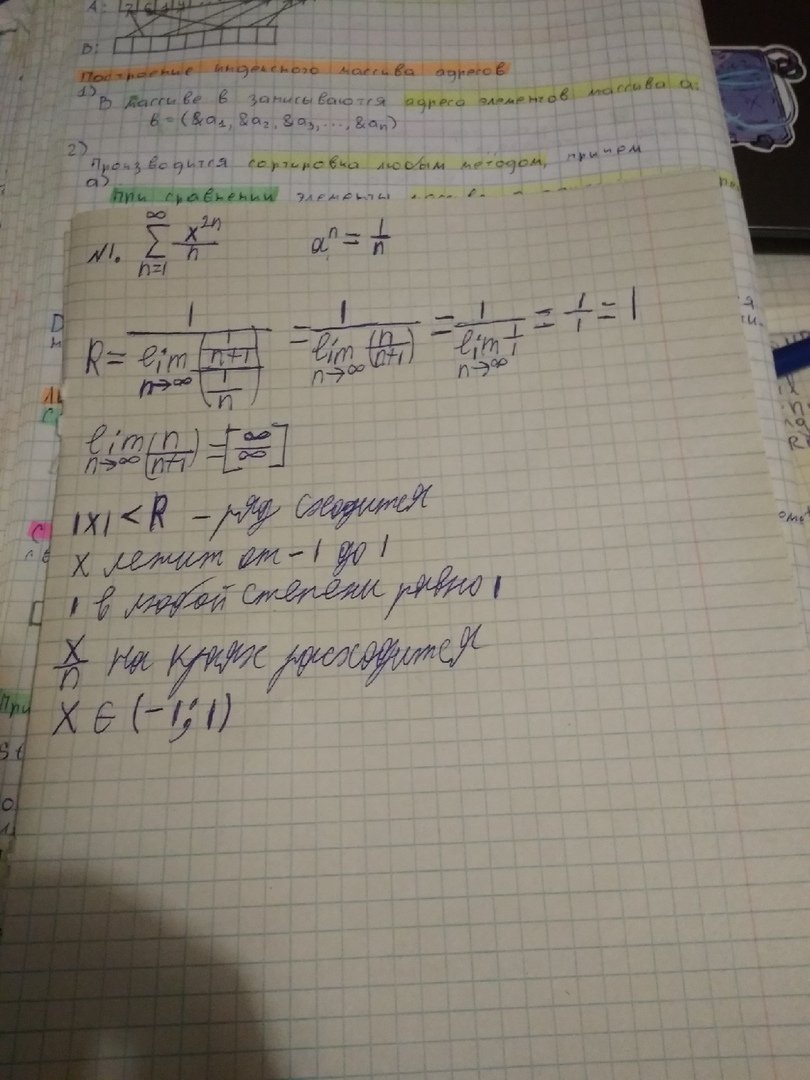 A:
D:
Построение индексного массива адресов
1)
В массиве в записываются адреса элементов массива a:
b = (&a₁, &a₂, &a₃, ..., &aₙ)
2)
Производится сортировка любым методом, причем
а)
При сравнении элементы
№1. ∑_{n=1}^{∞} x^{2n}/n    a^n = 1/n
R = 1/(lim_{n→∞} (1/(n+1))/(1/n)) = 1/(lim_{n→∞} (n/(n+1))) = 1/(lim_{n→∞} 1/1) = 1/1 = 1
lim_{n→∞} (n/(n+1)) = [∞/∞]
|x| < R – ряд сходится
x лежит от -1 до 1
1 в любой степени равно 1
x/n на краях расходится
X ∈ (-1; 1)
При